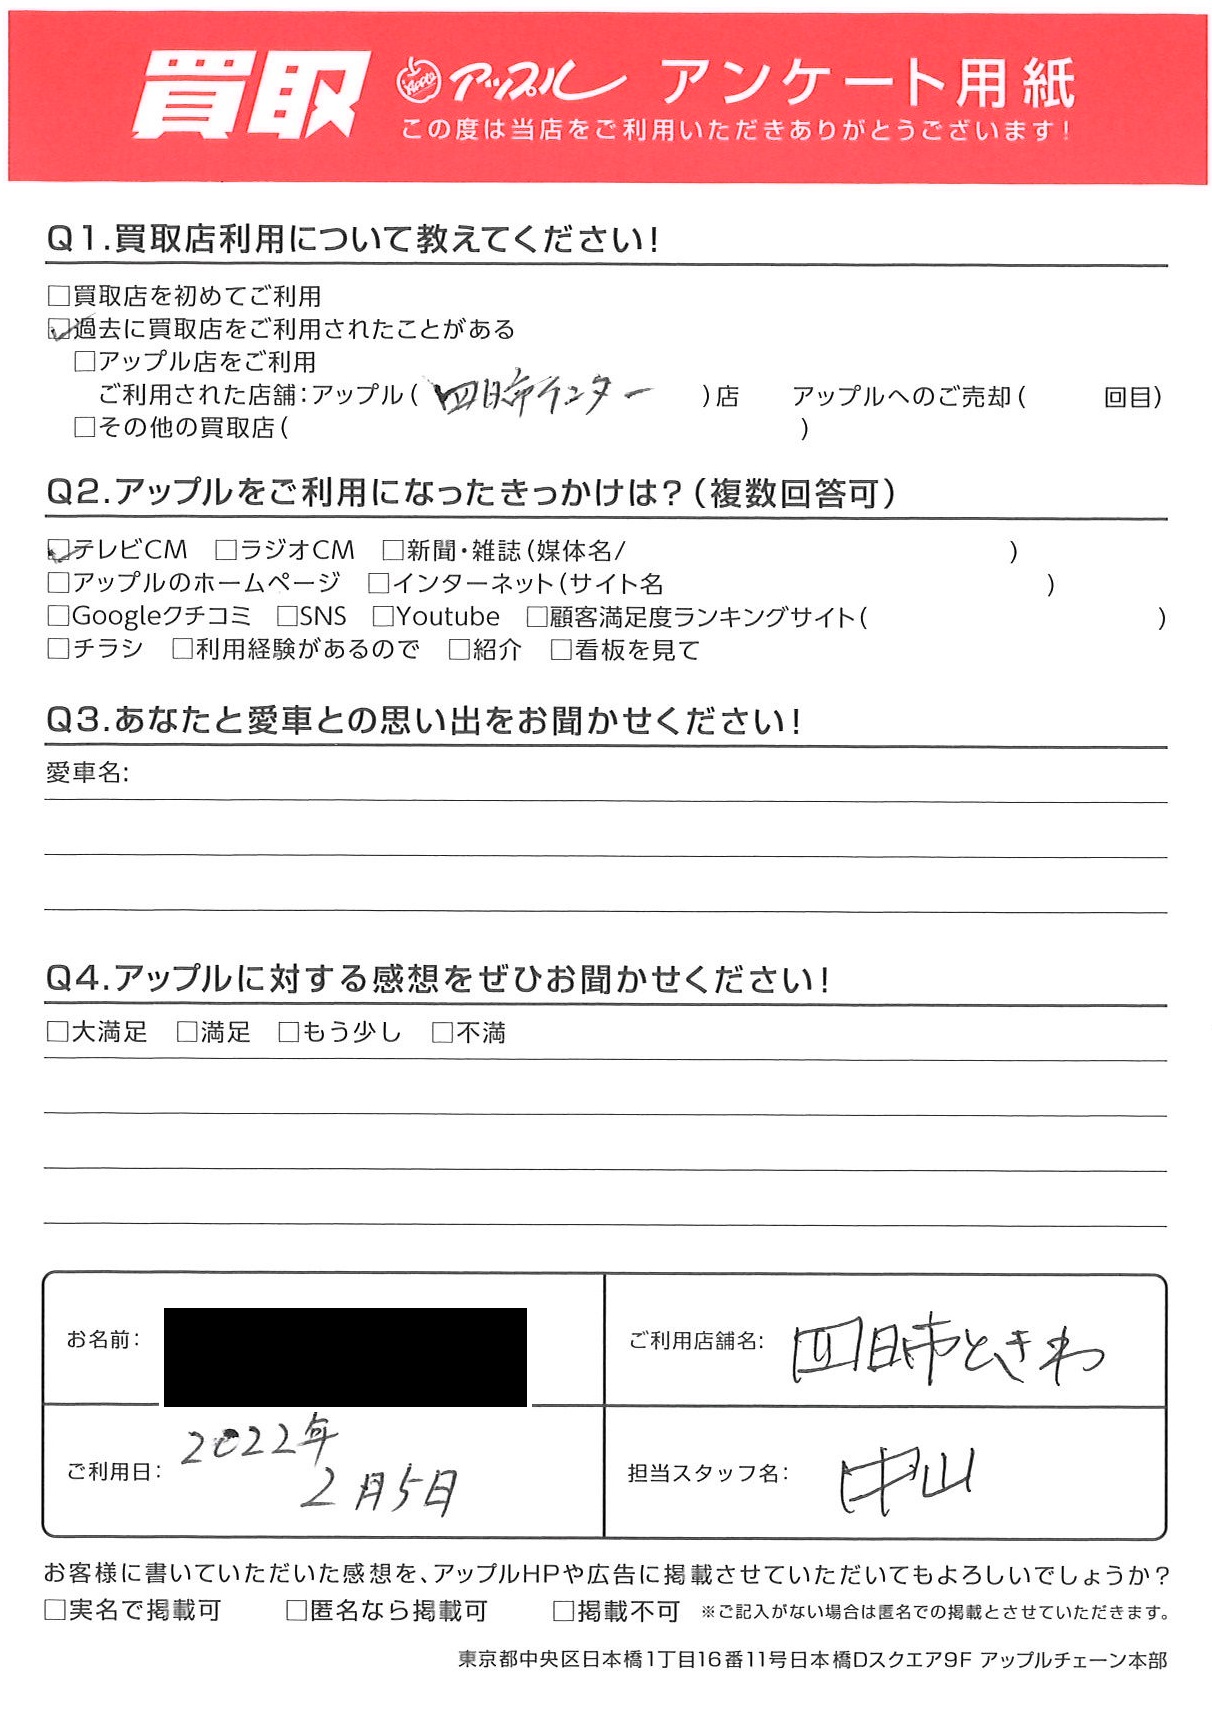 買取 Apple アップル アンケート用紙
この度は当店をご利用いただきありがとうございます!
Q1.買取店利用について教えてください!
□買取店を初めてご利用
☑過去に買取店をご利用されたことがある
□アップル店をご利用
ご利用された店舗:アップル( 四日市インター )店 アップルへのご売却( 回目)
□その他の買取店( )
Q2.アップルをご利用になったきっかけは?(複数回答可)
☑テレビCM □ラジオCM □新聞・雑誌(媒体名/ )
□アップルのホームページ □インターネット(サイト名 )
□Googleクチコミ □SNS □Youtube □顧客満足度ランキングサイト( )
□チラシ □利用経験があるので □紹介 □看板を見て
Q3.あなたと愛車との思い出をお聞かせください!
愛車名:
Q4.アップルに対する感想をぜひお聞かせください!
□大満足 □満足 □もう少し □不満
お名前:
ご利用店舗名: 四日市ときわ
ご利用日: 2022年
2月5日
担当スタッフ名: 中山
お客様に書いていただいた感想を、アップルHPや広告に掲載させていただいてもよろしいでしょうか?
□実名で掲載可 □匿名なら掲載可 □掲載不可 ※ご記入がない場合は匿名での掲載とさせていただきます。
東京都中央区日本橋1丁目16番11号日本橋Dスクエア9F アップルチェーン本部